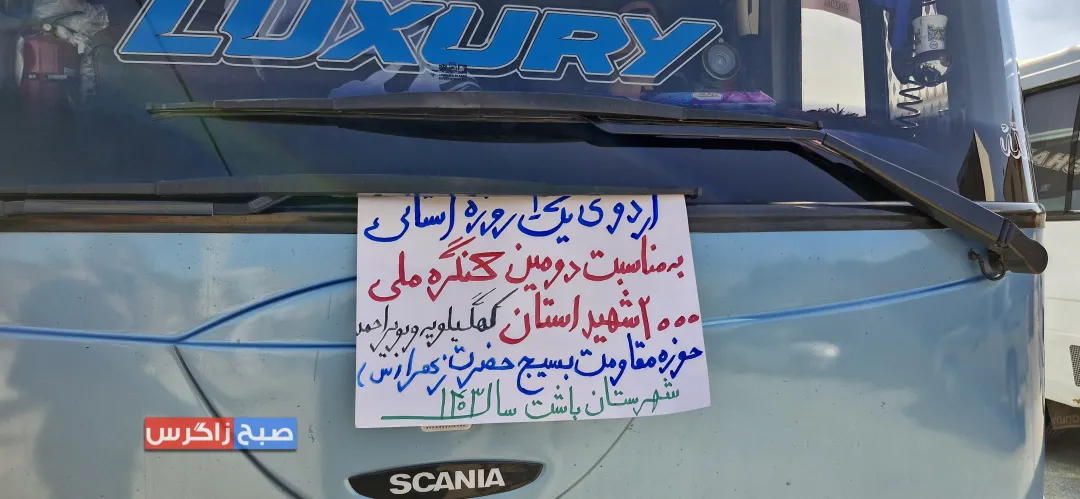 LUXURY
اردوی یک روزه استانی
به مناسبت دومین کنگره ملی
۲۰۰۰ شهید استان کهگیلویه و بویراحمد
حوزه مقاومت بسیج حضرت زهرا (س)
شهرستان باشت سال ۱۴۰۳
صبح زاگرس
SCANIA